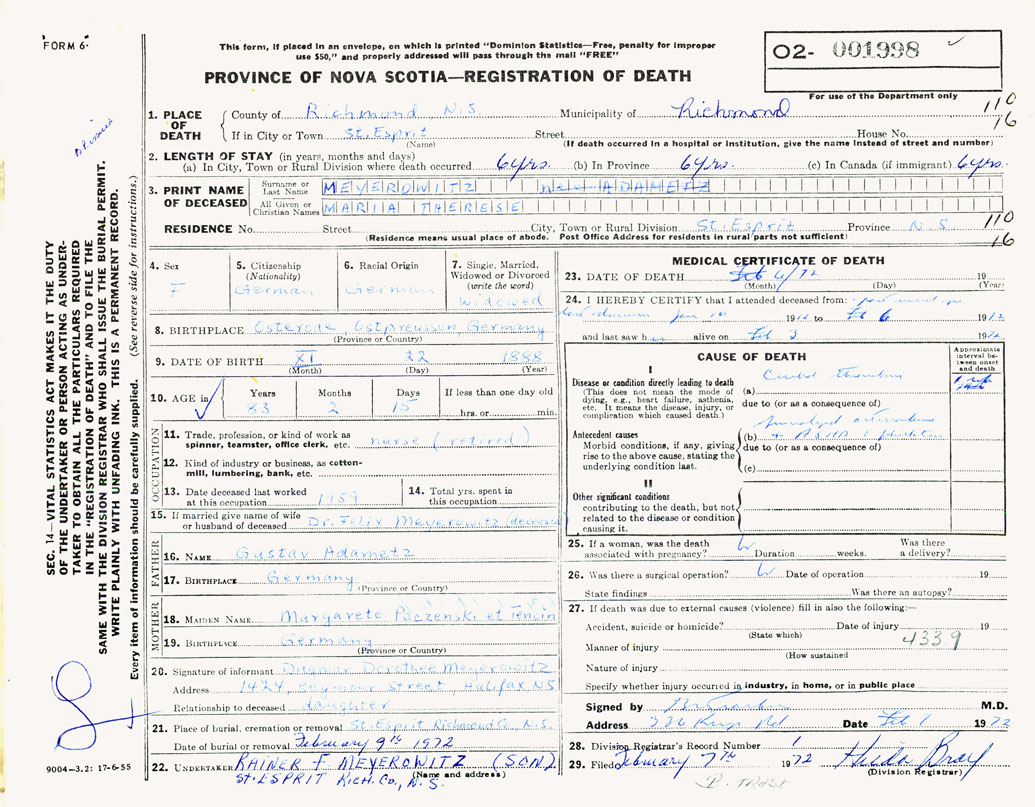 FORM 6.
This form, if placed in an envelope, on which is printed "Dominion Statistics—Free, penalty for improper
use $50," and properly addressed will pass through the mail "FREE"
PROVINCE OF NOVA SCOTIA—REGISTRATION OF DEATH
02- 001998
For use of the Department only
110
16
1. PLACE OF DEATH
County of Richmond N.S. Municipality of Richmond
If in City or Town St. Esprit Street House No.
(Name) (If death occurred in a hospital or institution, give the name instead of street and number)
2. LENGTH OF STAY (in years, months and days)
(a) In City, Town or Rural Division where death occurred 6 yrs. (b) In Province 6 yrs. (c) In Canada (if immigrant) 6 yrs.
3. PRINT NAME OF DECEASED
Surname or Last Name MEYEROWITZ née ADAMETZ
All Given or Christian Names MARIA THERESE
RESIDENCE No. Street City, Town or Rural Division St. Esprit Province N.S.
(Residence means usual place of abode. Post Office Address for residents in rural parts not sufficient)
110
16
SEC. 14—VITAL STATISTICS ACT MAKES IT THE DUTY
OF THE UNDERTAKER OR PERSON ACTING AS UNDER-
TAKER TO OBTAIN ALL THE PARTICULARS REQUIRED
IN THE "REGISTRATION OF DEATH" AND TO FILE THE
SAME WITH THE DIVISION REGISTRAR WHO SHALL ISSUE THE BURIAL PERMIT.
WRITE PLAINLY WITH UNFADING INK. THIS IS A PERMANENT RECORD.
Every item of information should be carefully supplied. (See reverse side for instructions.)
4. Sex
F
5. Citizenship
(Nationality)
German
6. Racial Origin
German
7. Single, Married,
Widowed or Divorced
(write the word)
Widowed
8. BIRTHPLACE Osterode, Ostpreussen, Germany
(Province or Country)
9. DATE OF BIRTH XI 22 1888
(Month) (Day) (Year)
10. AGE in
Years Months Days If less than one day old
83 2 15 hrs. or min.
OCCUPATION
11. Trade, profession, or kind of work as
spinner, teamster, office clerk, etc. nurse (retired)
12. Kind of industry or business, as cotton-
mill, lumbering, bank, etc.
13. Date deceased last worked
at this occupation 1959
14. Total yrs. spent in
this occupation
15. If married give name of wife
or husband of deceased Dr. Felix Meyerowitz (deceased)
FATHER
16. NAME Gustav Adametz
17. BIRTHPLACE Germany
(Province or Country)
MOTHER
18. MAIDEN NAME Margarete Paczenski et Tenczin
19. BIRTHPLACE Germany
(Province or Country)
20. Signature of informant Dorothee Meyerowitz
Address 1424, Seymour Street, Halifax, NS
Relationship to deceased daughter
21. Place of burial, cremation or removal St. Esprit Richmond Co. N.S.
Date of burial or removal February 9th 1972
22. UNDERTAKER RAINER F MEYEROWITZ (SON)
ST. ESPRIT RICH. CO., N.S.
(Name and address)
9004-3.2: 17-6-55
MEDICAL CERTIFICATE OF DEATH
23. DATE OF DEATH Feb 6/72 19
(Month) (Day) (Year)
24. I HEREBY CERTIFY that I attended deceased from:
Jan 1972 to Feb 6 1972
and last saw h alive on Feb 3 1972
CAUSE OF DEATH
Approximate
interval be-
tween onset
and death
I
Disease or condition directly leading to death
(This does not mean the mode of
dying, e.g., heart failure, asthenia,
etc. It means the disease, injury, or
complication which caused death.)
(a) Cerebral Thrombosis
due to (or as a consequence of)
Antecedent causes
Morbid conditions, if any, giving
rise to the above cause, stating the
underlying condition last.
(b)
due to (or as a consequence of)
(c)
II
Other significant conditions
contributing to the death, but not
related to the disease or condition
causing it.
25. If a woman, was the death
associated with pregnancy? Duration weeks. Was there
a delivery?
26. Was there a surgical operation? Date of operation 19
State findings Was there an autopsy?
27. If death was due to external causes (violence) fill in also the following:—
Accident, suicide or homicide? Date of injury 19
(State which)
Manner of injury 433.9
(How sustained)
Nature of injury
Specify whether injury occurred in industry, in home, or in public place
Signed by M.D.
Address Kings Rd Date Feb 1972
28. Division Registrar's Record Number 1
29. Filed February 7th 1972 Hilda Bray
(Division Registrar)